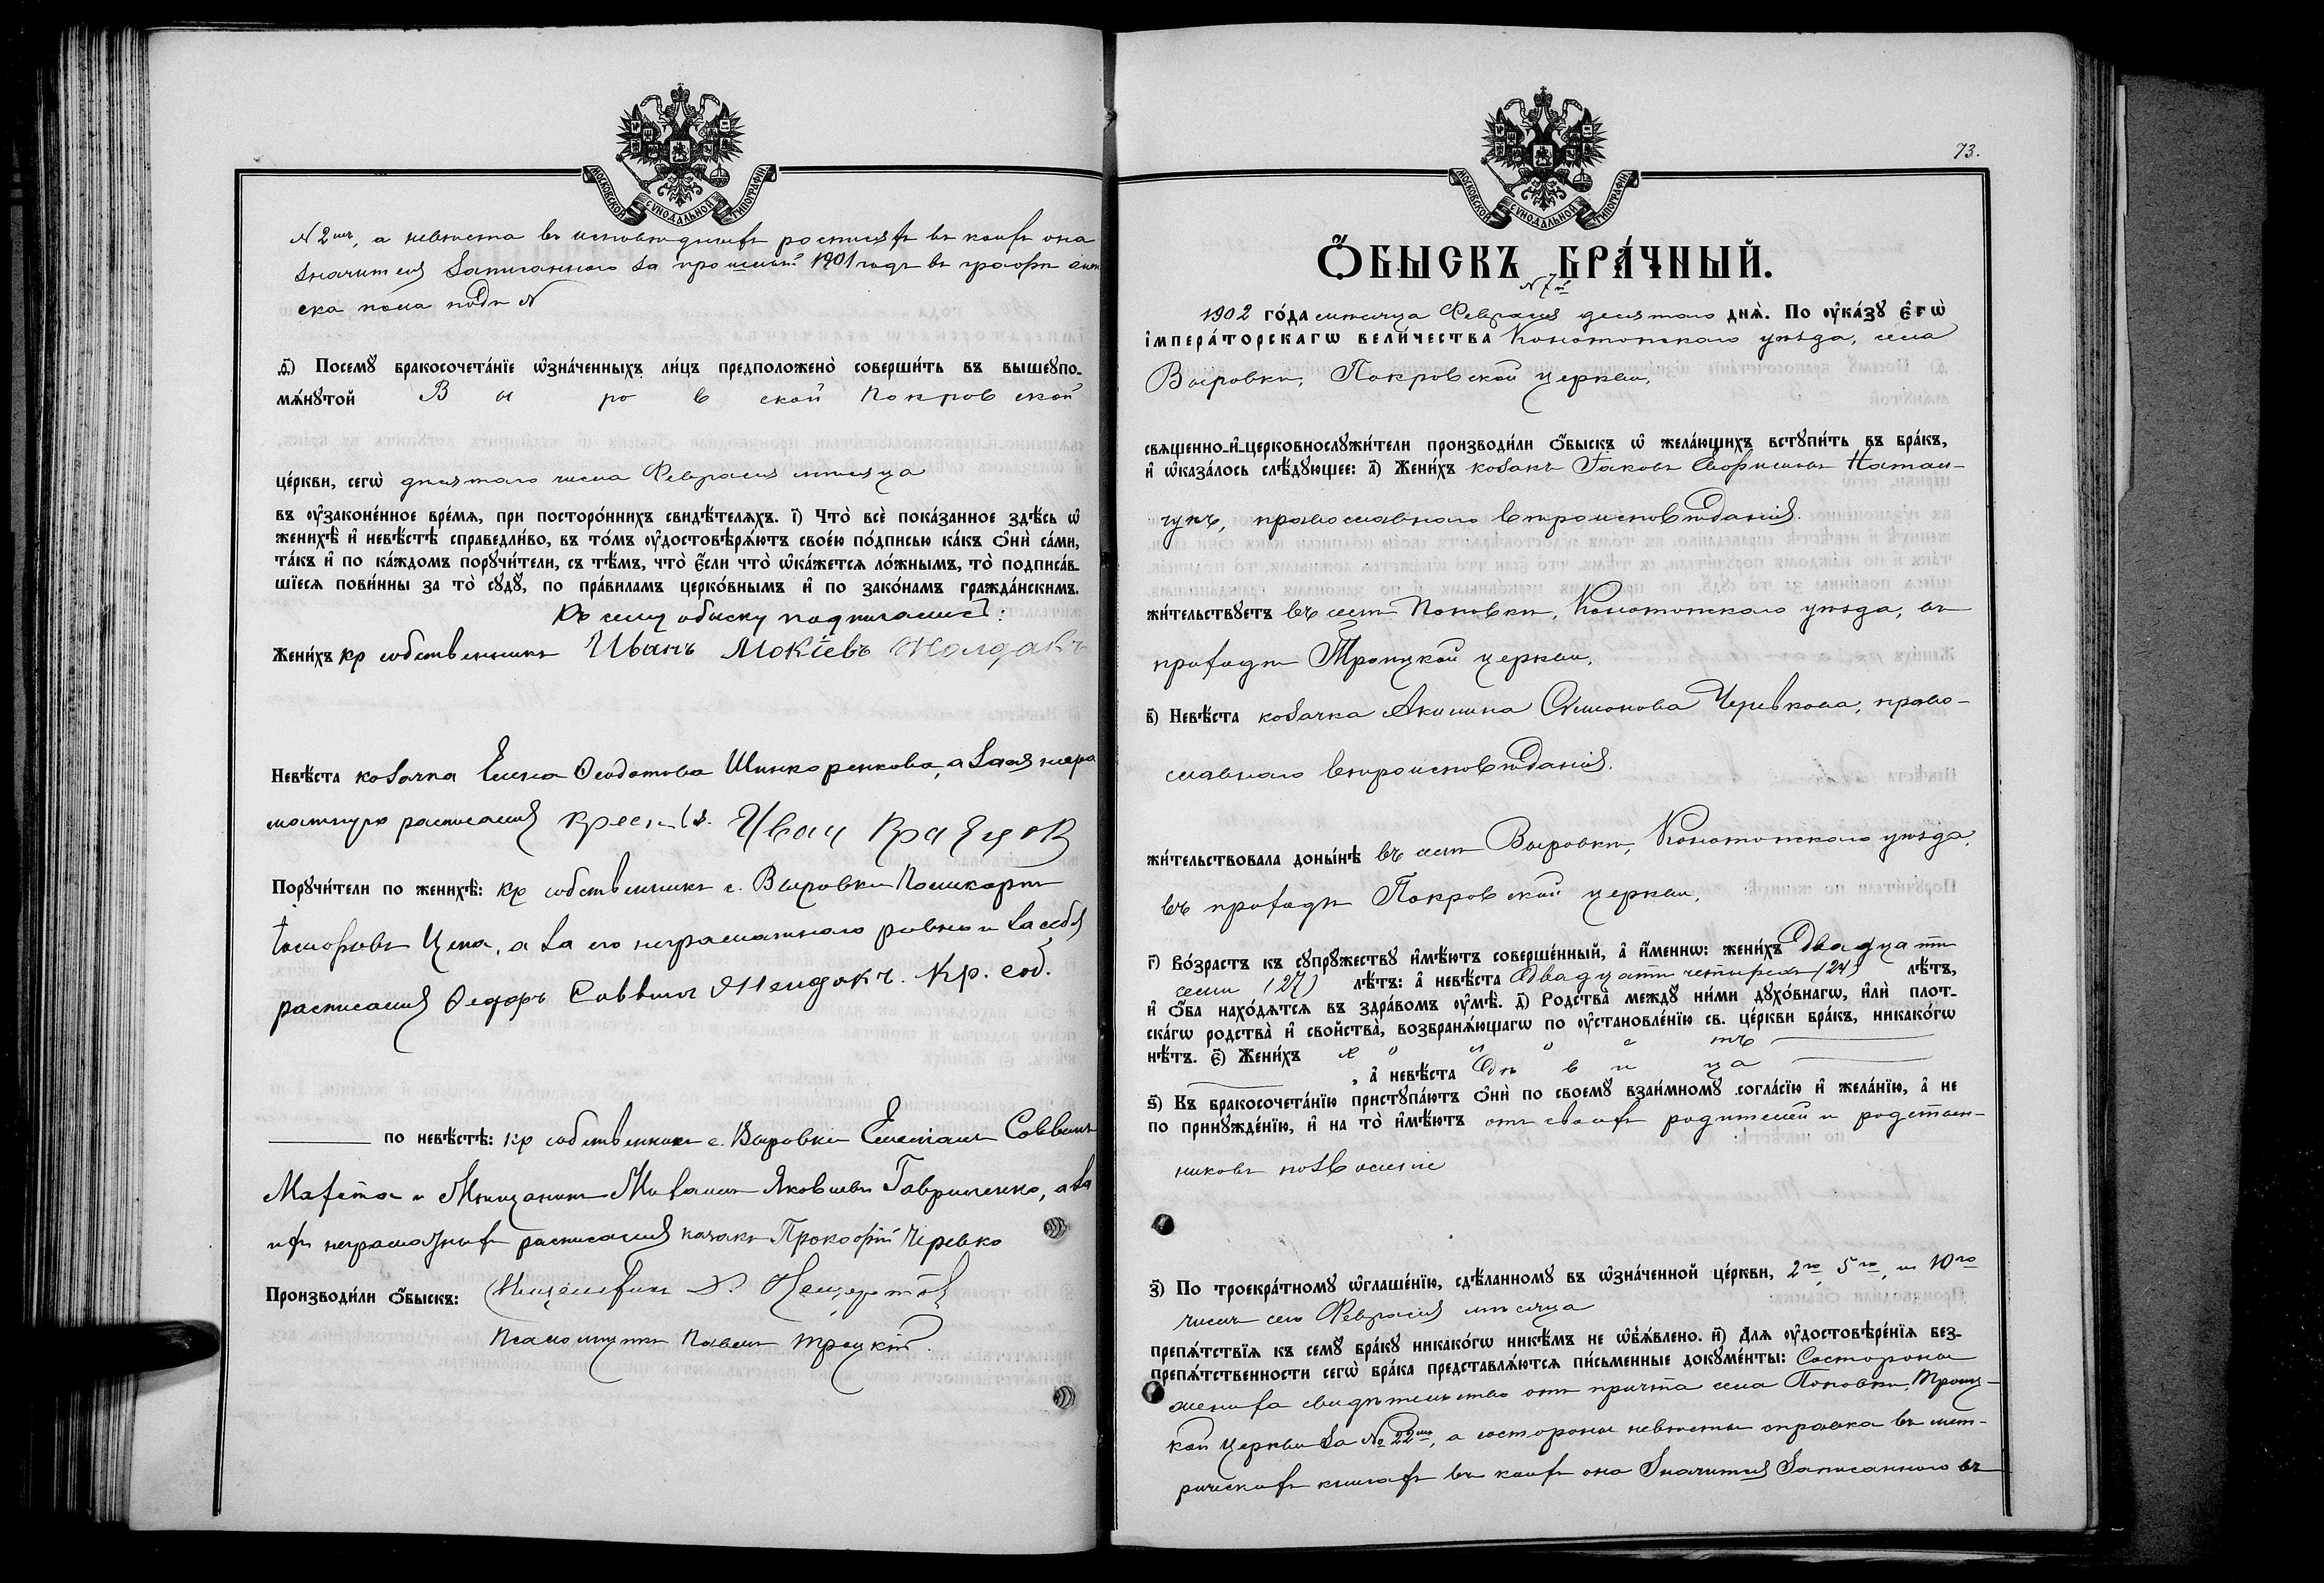 МОСКОВСКОЙ СУНОДАЛЬНОЙ ТИПОГРАФІИ
№ 2мъ, а невѣста въ исповѣдныхъ росписяхъ въ коихъ она
значится записанною за прошлый 1901 годъ въ графѣ женс
ска пола подъ №
д҃) Посемꙋ бракосочета́нїе ѡ҆зна́ченныхъ ли́цъ предположено̀ соверши́ть въ вышеꙋпо-
мѧ́нꙋтой Выровской Покровской
це́ркви, сегѡ̀ девятаго числа Февраля мѣсяца
въ ᲂу҆законе́нное вре́мѧ, при посторо́ннихъ свидѣ́телѧхъ. і҃) Что̀ всѐ пока́занное здѣ́сь ѡ҆
женихѣ̀ и҆ невѣ́стѣ справедли́во, въ то́мъ ᲂу҆достовѣрѧ́ютъ свое́ю по́дписью ка́къ ѻ҆нѝ са́ми,
та́къ и҆ по ка́ждомъ порꙋчи́тели, съ тѣ́мъ, что̀ є҆́сли что̀ ѡ҆ка́жетсѧ ло́жнымъ, то̀ подписа́в-
шїесѧ пови́нны за то̀ сꙋдꙋ̀, по пра́виламъ церко́внымъ и҆ по зако́намъ гражда́нскимъ.
Къ сему обыску подписались:
Жени́хъ кр собственникъ Иванъ Мокіевъ Жолдакъ
Невѣ́ста козачка Елена Ѳеодотова Шинкоренкова, а за ея негра
мотную расписался Крест. Иван
Порꙋчи́тели по женихѣ̀: кр собственникъ с. Выровки Поликарпъ
Тимофѣевъ Цепа, а за его неграмотнаго равно и за себя
расписался Ѳедоръ Саввинъ Жендокъ. Кр. соб.
по невѣ́стѣ: кр собственникъ с. Выровки Емеліанъ Саввинъ
Махота и Мѣщанинъ Михаилъ Яковлевъ Гавриленко, а за
ихъ неграмотныхъ расписался казакъ Прокофій Черевко
Производи́ли ѻ҆́быскъ: Священникъ
Псаломщикъ Павелъ Троцкій.
73.
МОСКОВСКОЙ СУНОДАЛЬНОЙ ТИПОГРАФІИ
Ѻ҆́БЫСКЪ БРА́ЧНЫЙ.
№ 7й
1902 го́да мѣсяца Февраля десятаго днѧ̀. По ᲂу҆ка́зꙋ є҆гѡ̀
і҆мпера́торскагѡ вели́чества Конотопскаго уѣзда, села
Выровки, Покровской церкви,
свѧщенно-и҆-церковнослꙋжи́тели производи́ли ѻ҆́быскъ ѡ҆ жела́ющихъ встꙋпи́ть въ бра́къ,
и҆ ѡ҆каза́лось слѣ́дꙋющее: а҃) Жени́хъ козакъ Іаковъ Натан-
чукъ, православнаго вѣроисповѣданія.
жи́тельствꙋетъ въ селѣ Поповкѣ, Конотопскаго уѣзда, въ
приходѣ Троицкой церкви,
в҃) Невѣ́ста козачка Акилина Симонова Черевкова, право-
славнаго вѣроисповѣданія.
жи́тельствовала доны́нѣ въ селѣ Выровкѣ, Конотопскаго уѣзда,
въ приходѣ Покровской церкви,
г҃) Во́зрастъ къ сꙋпрꙋ́жествꙋ и҆мѣ́ютъ соверше́нный, а҆ и҆́меннѡ: жени́хъ Двадцати
семи (27) лѣ́тъ: а҆ невѣ́ста Двадцати четырехъ (24) лѣ́тъ,
и҆ ѻ҆́ба нахо́дѧтсѧ въ здра́вомъ ᲂу҆мѣ̀. д҃) Родства̀ междꙋ̀ ни́ми дꙋхо́внагѡ, и҆лѝ плот-
ска́гѡ родства̀ и҆ свойства̀, возбранѧ́ющагѡ по ᲂу҆становле́нїю св. це́ркви бра́къ, никако́гѡ
нѣ́тъ. є҃) Жени́хъ холостъ
, а҆ невѣ́ста Дѣвица
ѕ҃) Къ бракосочета́нїю пристꙋпа́ютъ ѻ҆нѝ по своемꙋ̀ взаи́мномꙋ согла́сїю и҆ жела́нїю, а҆ не
по принꙋжде́нїю, и҆ на то̀ и҆мѣ́ютъ отъ своихъ родителей и родствен-
никовъ позволеніе
з҃) По троекра́тномꙋ ѡ҆глаше́нїю, сдѣ́ланномꙋ въ ѡ҆зна́ченной це́ркви, 2го, 5го, и 10го
чиселъ сего Февраля мѣсяца
препѧ́тствїѧ къ семꙋ̀ бра́кꙋ никако́гѡ никѣ́мъ не ѡ҆б̾ѧ́влено. и҃) Длѧ ᲂу҆достовѣре́нїѧ без-
препѧ́тственности сегѡ̀ бра́ка представлѧ́ютсѧ пи́сьменные докꙋме́нты: Состороны
жениха свидѣтельство отъ причта села Поповки, Троиц-
кой церкви за № 22мъ, а состороны невѣсты справка въ мет-
рическихъ книгахъ въ коихъ она значится записанною въ